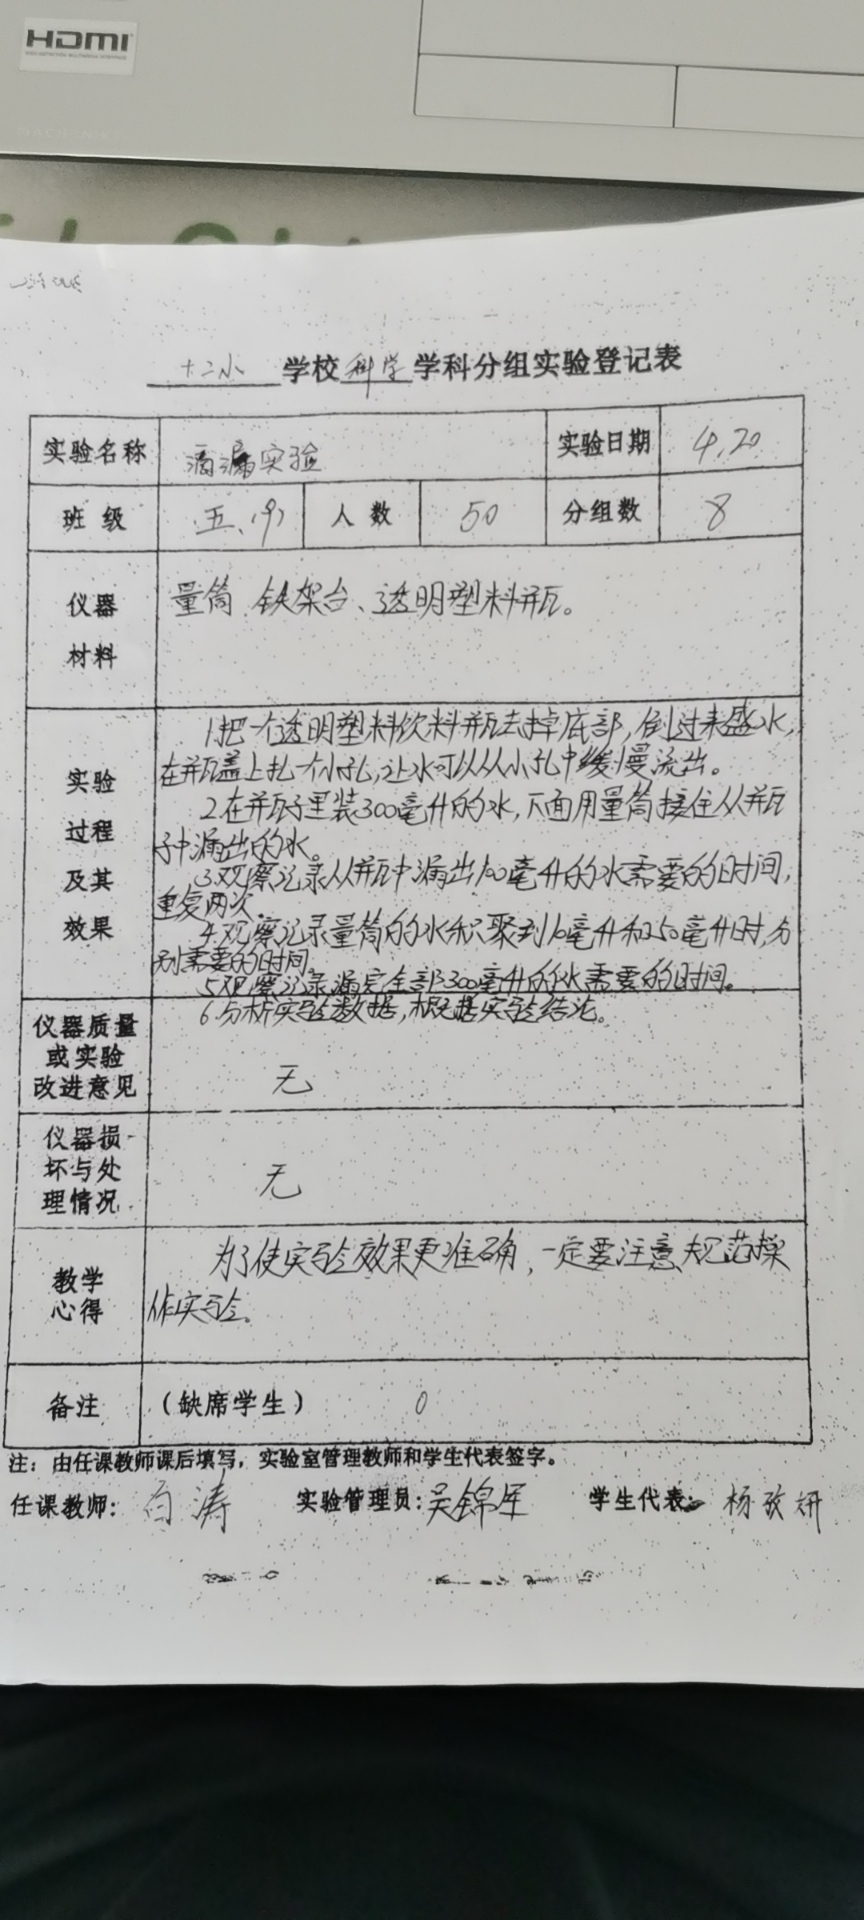 HDMI
十二小 学校 科学 学科分组实验登记表
实验名称 滴漏实验 实验日期 4.20
班 级 五、(9) 人 数 50 分组数 8
仪器
材料
量筒 铁架台、透明塑料瓶。
实验
过程
及其
效果
1.把一个透明塑料饮料瓶去掉底部,倒过来盛水,
在瓶盖上扎一个小孔,让水可以从小孔中缓慢流出。
2.在瓶子里装300毫升的水,下面用量筒接住从瓶
子中漏出的水。
3.观察记录从瓶中漏出100毫升的水需要的时间,
重复两次.
4.观察记录量筒的水积聚到10毫升和250毫升时,分
别需要的时间。
5.观察记录漏完全部300毫升的水需要的时间。
6.分析实验数据,根据实验结论。
仪器质量
或实验
改进意见
无
仪器损
坏与处
理情况
无
教学
心得
为了使实验效果更准确,一定要注意规范操
作实验。
备注 (缺席学生) 0
注:由任课教师课后填写,实验室管理教师和学生代表签字。
任课教师:白涛 实验管理员:吴锦军 学生代表: 杨孜妍